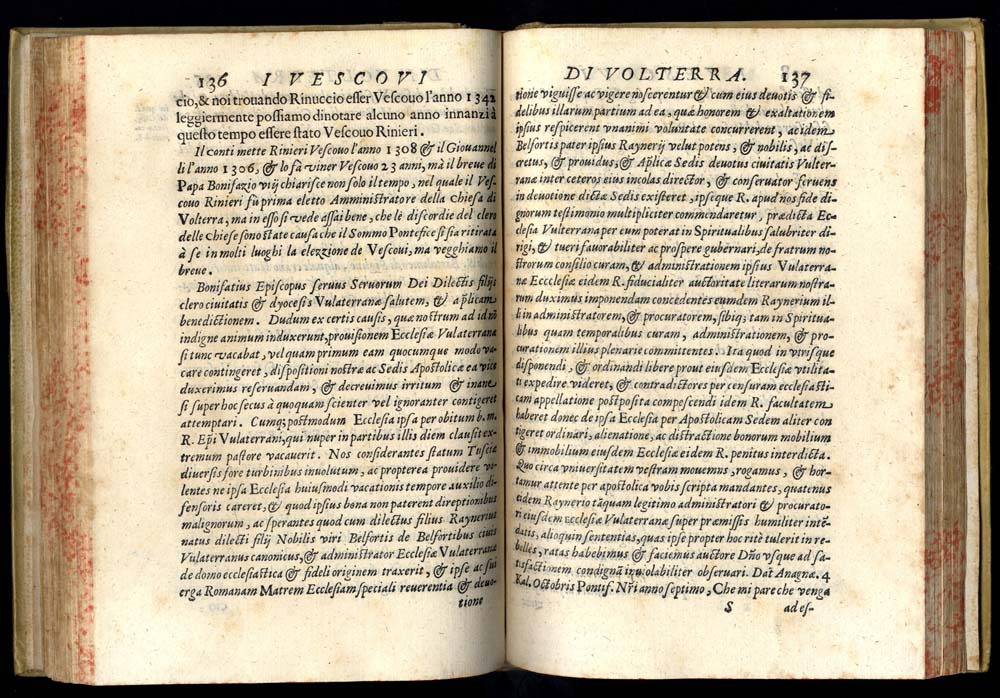 136 I VESCOVI
cio, & noi trouando Rinuccio esser Vescouo l'anno 1342
leggiermente possiamo dinotare alcuno anno innanzi à
questo tempo essere stato Vescouo Rinieri.
Il conti mette Rinieri Vescouo l'anno 1308 & il Giouannel
li l'anno 1306, & lo fà viuer Vescouo 23 anni, mà il breue di
Papa Bonifazio viij chiarisce non solo il tempo, nel quale il Ves
couo Rinieri fù prima eletto Amministratore della Chiesa di
Volterra, ma in esso si vede assai bene, che le discordie del clero
delle Chiese sono state causa che il Sommo Pontefice si sia ritirata
à se in molti luoghi la elezzione de Vescoui, ma vegghiamo il
breue.
Bonifatius Episcopus seruus Seruorum Dei Dilectis filijs
clero ciuitatis & dyocesis Vulateranæ salutem, & ap̃licam
benedictionem. Dudum ex certis causis, quæ nostrum ad id nõ
indigne animum induxerunt, prouisionem Ecclesiæ Vulaterranæ
si tunc vacabat, vel quam primum eam quocunque modo va-
care contingeret, dispositioni nostræ ac Sedis Apostolicæ ea vice
duximus reseruandam, & decreuimus irritum & inane
si super hoc secus à quoquam scienter vel ignoranter contigeret
attemptari. Cumq; postmodum Ecclesia ipsa per obitum b. m.
R. Ep̃i Vulaterrani, qui nuper in partibus illis diem clausit ex-
tremum pastore vacauerit. Nos considerantes statum Tusciæ
diuersis fore turbinibus inuolutum, ac propterea prouidere vo-
lentes ne ipsa Ecclesia huiusmodi vacationis tempore auxilio di-
fensoris careret, & quod ipsius bona non paterent direptionibus
malignorum, ac sperantes quod cum dilectus filius Raynerius
natus dilecti filij Nobilis viri Belfortis de Belfortibus ciuis
Vulaterranus canonicus, & administrator Ecclesiæ Vulaterranæ
de domo ecclesiastica & fideli originem traxerit, & ipse ac sui
erga Romanam Matrem Ecclesiam speciali reuerentia & deuo-
tione
DI VOLTERRA. 137
tione viguisse ac vigere noscerentur & cum eius deuotis & fi-
delibus illarum partium ad ea, quæ honorem & exaltationem
ipsius respicerent vnanimi voluntate concurrerent, ac idem
Belfortis pater ipsius Raynerij velut potens, & nobilis, ac dis-
cretus, & prouidus, & Ap̃licæ Sedis deuotus ciuitatis Vulter-
ranæ inter ceteros eius incolas director, & conseruator feruens
in deuotione dictæ Sedis existeret, ipseque R. apud nos fide di-
gnorum testimonio multipliciter commendaretur, prædicta Ec-
clesia Vulterrana per eum poterat in Spiritualibus salubriter di-
rigi, & tueri fauorabiliter ac prospere gubernari, de fratrum no-
strorum consilio curam, & administrationem ipsius Vulaterra-
næ Eccclesiæ eidem R. fiducialiter auctoritate literarum nostra-
rum duximus imponendam concedentes eumdem Raynerium il-
li in administratorem, & procuratorem, sibiq; tam in Spiritua-
libus quam temporalibus curam, administrationem, & pro-
curationem illius plenarie committentes. Ita quod in vtrisque
disponendi, & ordinandi libere prout eiusdem Ecclesiæ vtilita-
ti expedire videret, & contradictores per censuram ecclesiasti-
cam appellatione postposita compescendi idem R. facultatem
haberet donec de ipsa Ecclesia per Apostolicam Sedem aliter con
tigeret ordinari, alienatione, ac distractione bonorum mobilium
& immobilium eiusdem Ecclesiæ eidem R. penitus interdicta.
Quo circa vniuersitatem vestram mouemus, rogamus, & hor-
tamur attente per apostolica vobis scripta mandantes, quatenus
eidem Raynerio tãquam legitimo administratori & procurato-
ri eiusdem Ecclesiæ Vulaterranæ super præmissis humiliter intẽ-
datis, alioquin sententias, quas ipse propter hoc ritè tulerit in re-
belles, ratas habebimus & faciemus auctore Dño vsque ad sa-
tisfactionem condignã inuiolabiliter obseruari. Dat̃ Anagnæ. 4
Kal. Octobris Pontif. Nr̃i anno septimo, Che mi pare che venga
S ad es-